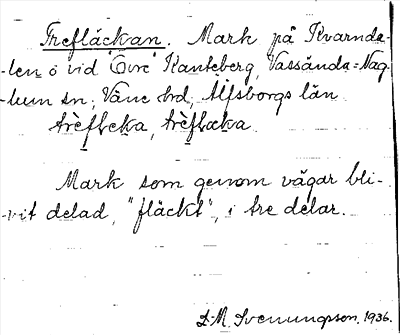 Trefläckan. Mark på Kvarnda-
-len ö vid "Övre" Kanteberg, Vassända-Nag-
-lum sn, Väne hd, Älfsborgs län
trèflɛka, trèflɛka
Mark som genom vägar bli-
-vit delad, "fläckt", i tre delar.
L-M. Svenungsson. 1936.